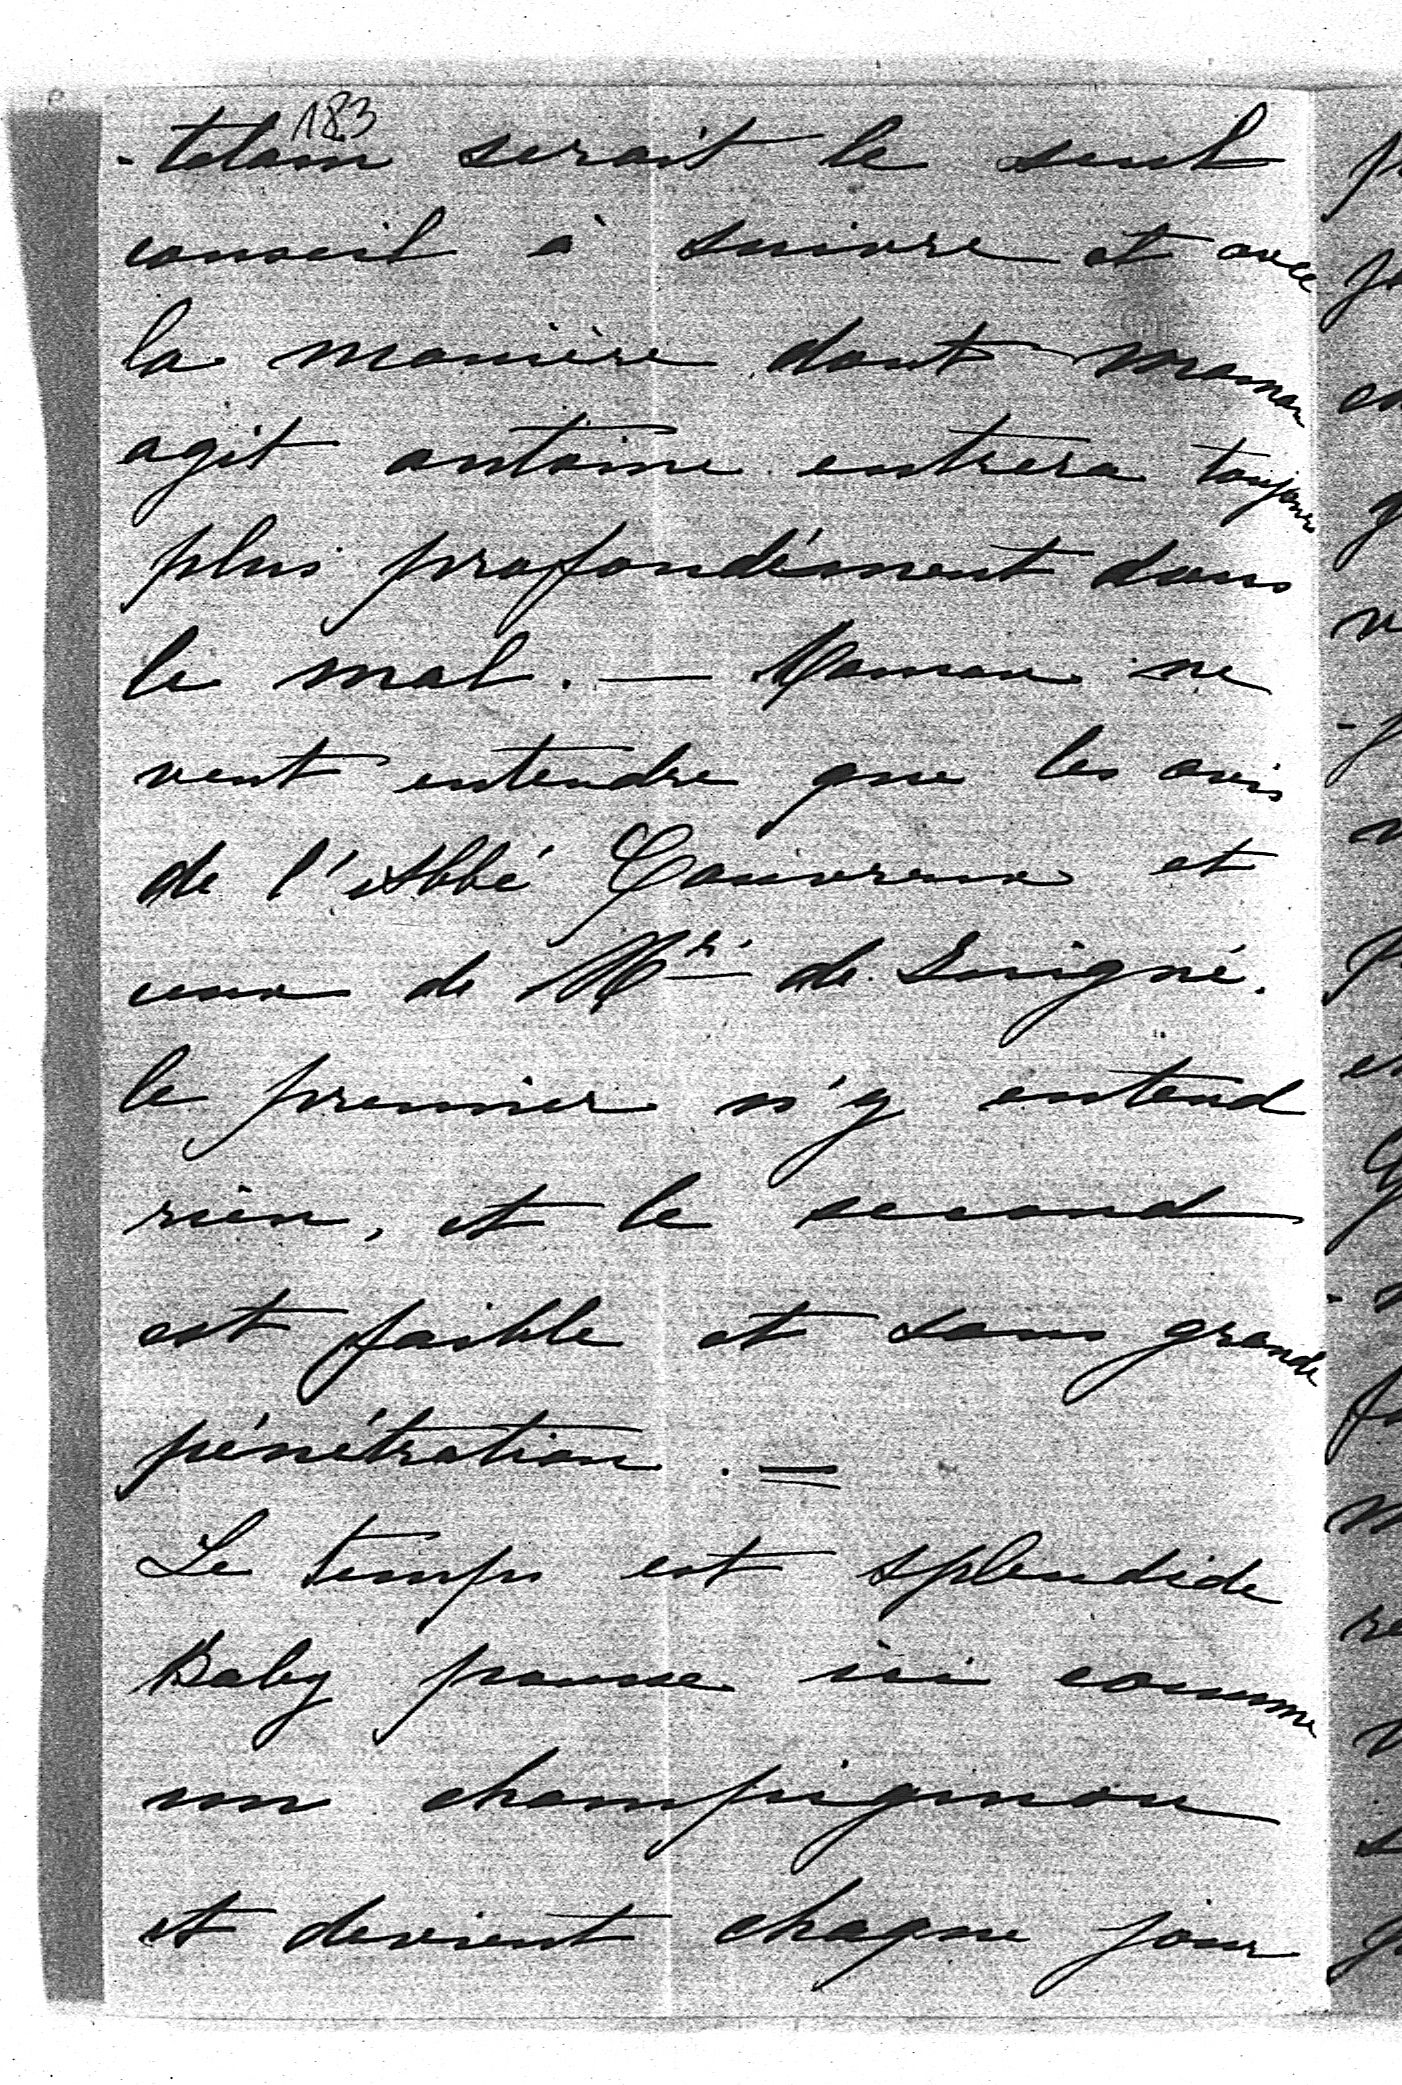 183
-telain serait le seul
conseil à suivre et avec
la manière dont maman
agit antoine entrera toujours
plus profondément dans
le mal. — Maman ne
veut entendre que les avis
de l'Abbé Couvreux et
ceux de Mr de Suigné.
le premier n'y entend
rien, et le second
est faible et sans grande
pénétration. =
Le temps est splendide
Baby pousse ici comme
un champignon
et devient chaque jour